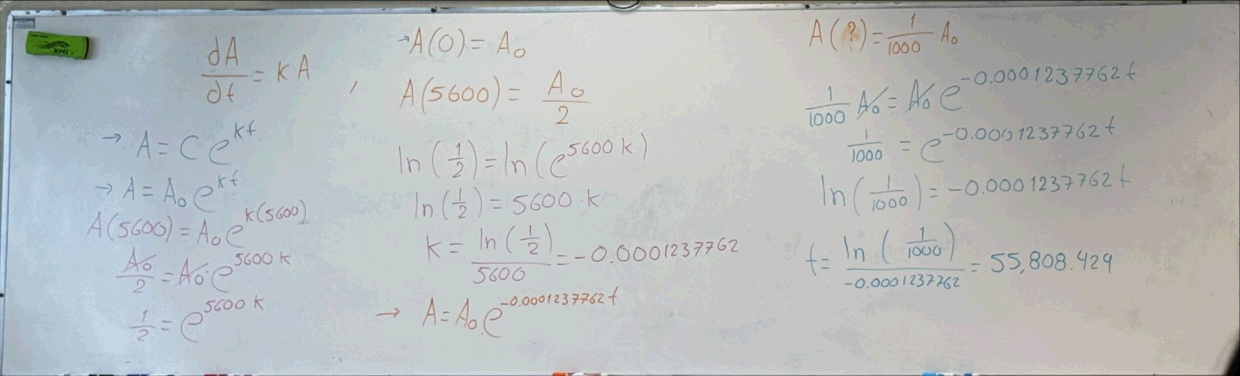 dA/dt = kA ,
→ A = Ce^{kt}
→ A = A₀e^{kt}
A(5600) = A₀e^{k(5600)}
A₀/2 = A₀·e^{5600k}
1/2 = e^{5600k}
→A(0) = A₀
A(5600) = A₀/2
ln(1/2) = ln(e^{5600k})
ln(1/2) = 5600·k
k = ln(1/2)/5600 = -0.0001237762
→ A = A₀e^{-0.0001237762t}
A(?) = 1/1000 A₀
1/1000 A₀ = A₀e^{-0.0001237762t}
1/1000 = e^{-0.0001237762t}
ln(1/1000) = -0.0001237762t
t = ln(1/1000)/-0.0001237762 = 55,808.429